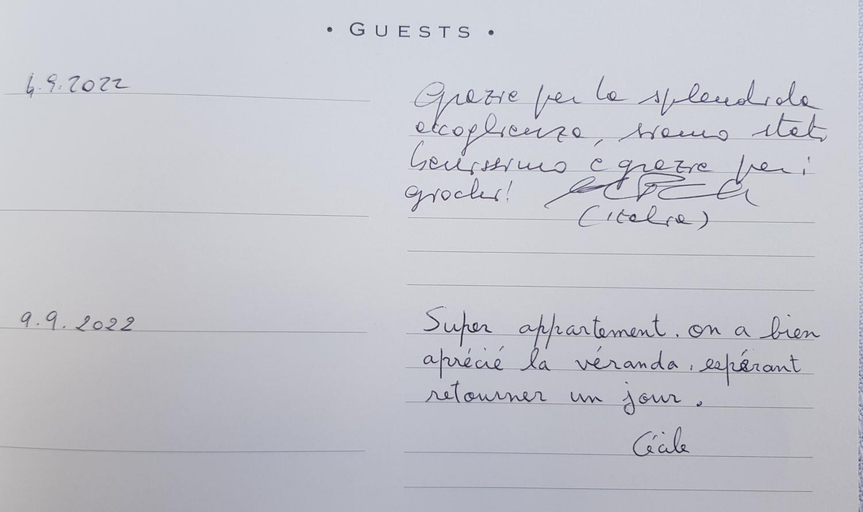 • GUESTS •
4.9.2022
Grazie per la splendida
accoglienza, siamo stati
benissimo e grazie per i
giochi!
(italia)
9.9.2022
Super appartement. on a bien
aprécié la véranda. espérant
retourner un jour.
Cécile